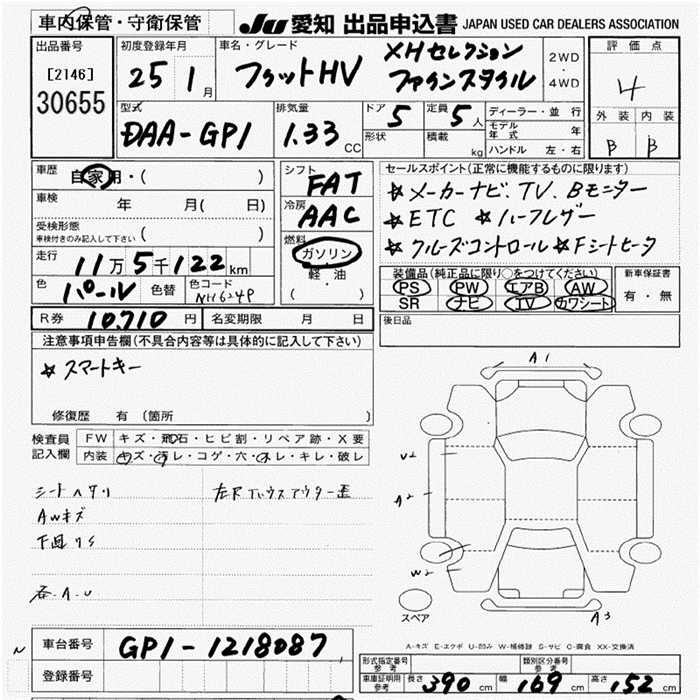 車内保管・守衛保管
JU 愛知 出品申込書 JAPAN USED CAR DEALERS ASSOCIATION
出品番号 初度登録年月 車名・グレード 評価点
[2146] 25 1 月 フィットHV XHセレクション 2WD・4WD 4
30655 ファインスタイル
型式 排気量 ドア 定員 ディーラー・並行 外装 内装
DAA-GP1 1.33 CC 5 5人 モデル年式 年 B B
形状 積載 kg ハンドル 左・右
車歴 自家用・( ) シフト FAT セールスポイント(正常に機能するものに限ります)
車検 年 月( 日) 冷房 AAC ☆メーカーナビ、TV、Bモニター
受検形態 ( ) ☆ETC ☆ハーフレザー
車検付きのみ記入して下さい 燃料 ガソリン ☆クルーズコントロール ☆Fシートヒータ
走行 11万5千122km 軽・油
装備品(純正品に限り○をつけてください) 新車保証書
PS PW エアB AW 有・無
SR ナビ TV カワシート
色 パール 色替 色コード NH624P ( )
R券 10,710 円 名変期限 月 日 後日品
注意事項申告欄(不具合内容等は具体的に記入して下さい)
☆スマートキー
修復歴 有 (箇所 )
検査員記入欄 FW キズ・飛石・ヒビ割・リペア跡・X要
内装 キズ・汚レ・コゲ・穴・スレ・キレ・破レ
シートヘタリ
AWキズ
下回りS
各A.U
A1
U2
A2
W2
A3
スペア
A-キズ E-エクボ U-凹み W-補修跡 S-サビ C-腐食 XX-交換済
車台番号 GP1-1218087
登録番号
形式指定番号 参考 類別区分番号 参考
車庫証明用 参考 長さ 390 cm 幅 169 cm 高さ 152 cm